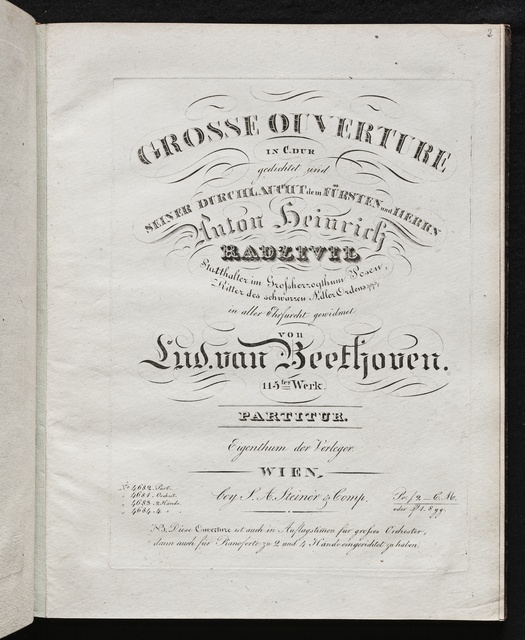 2
GROSSE OUVERTURE
IN C.DUR
gedichtet und
SEINER DURCHLAUCHT dem FÜRSTEN und HERRN
Anton Heinrich
RADZIVIL
Statthalter im Großherzogthum Posen,
Ritter des schwarzen Adler Ordens
in aller Ehrfurcht gewidmet
VON
Lud. van Beethoven.
115ter Werk.
PARTITUR.
Eigenthum der Verleger.
WIEN,
bey S. A. Steiner & Comp.
No 4682. Part.
" 4681. Orchest.
" 4683. 2 Hände.
" 4684. 4 " "
NB. Diese Ouverture ist auch in Auflagstimen für großes Orchester,
dann auch für Pianoforte zu 2 und 4 Hände eingerichtet zu haben.